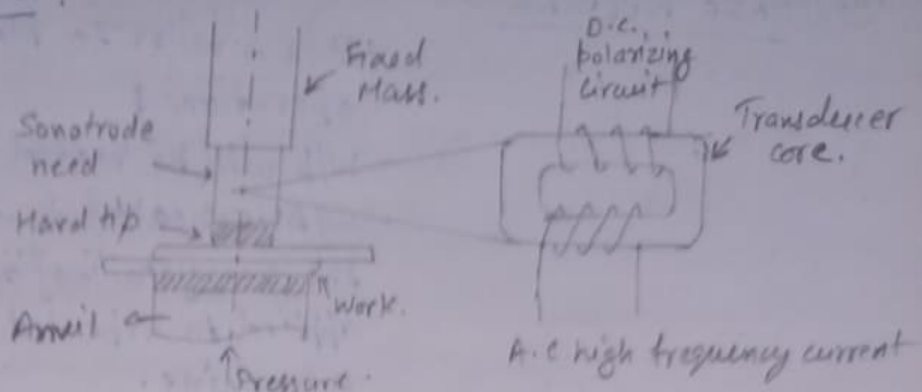 Fixed
Mass.
Sonotrode
need
Hard tip
Anvil
Work.
Pressure.
D.C.
polarizing
circuit
Transducer
core.
A.C high frequency current